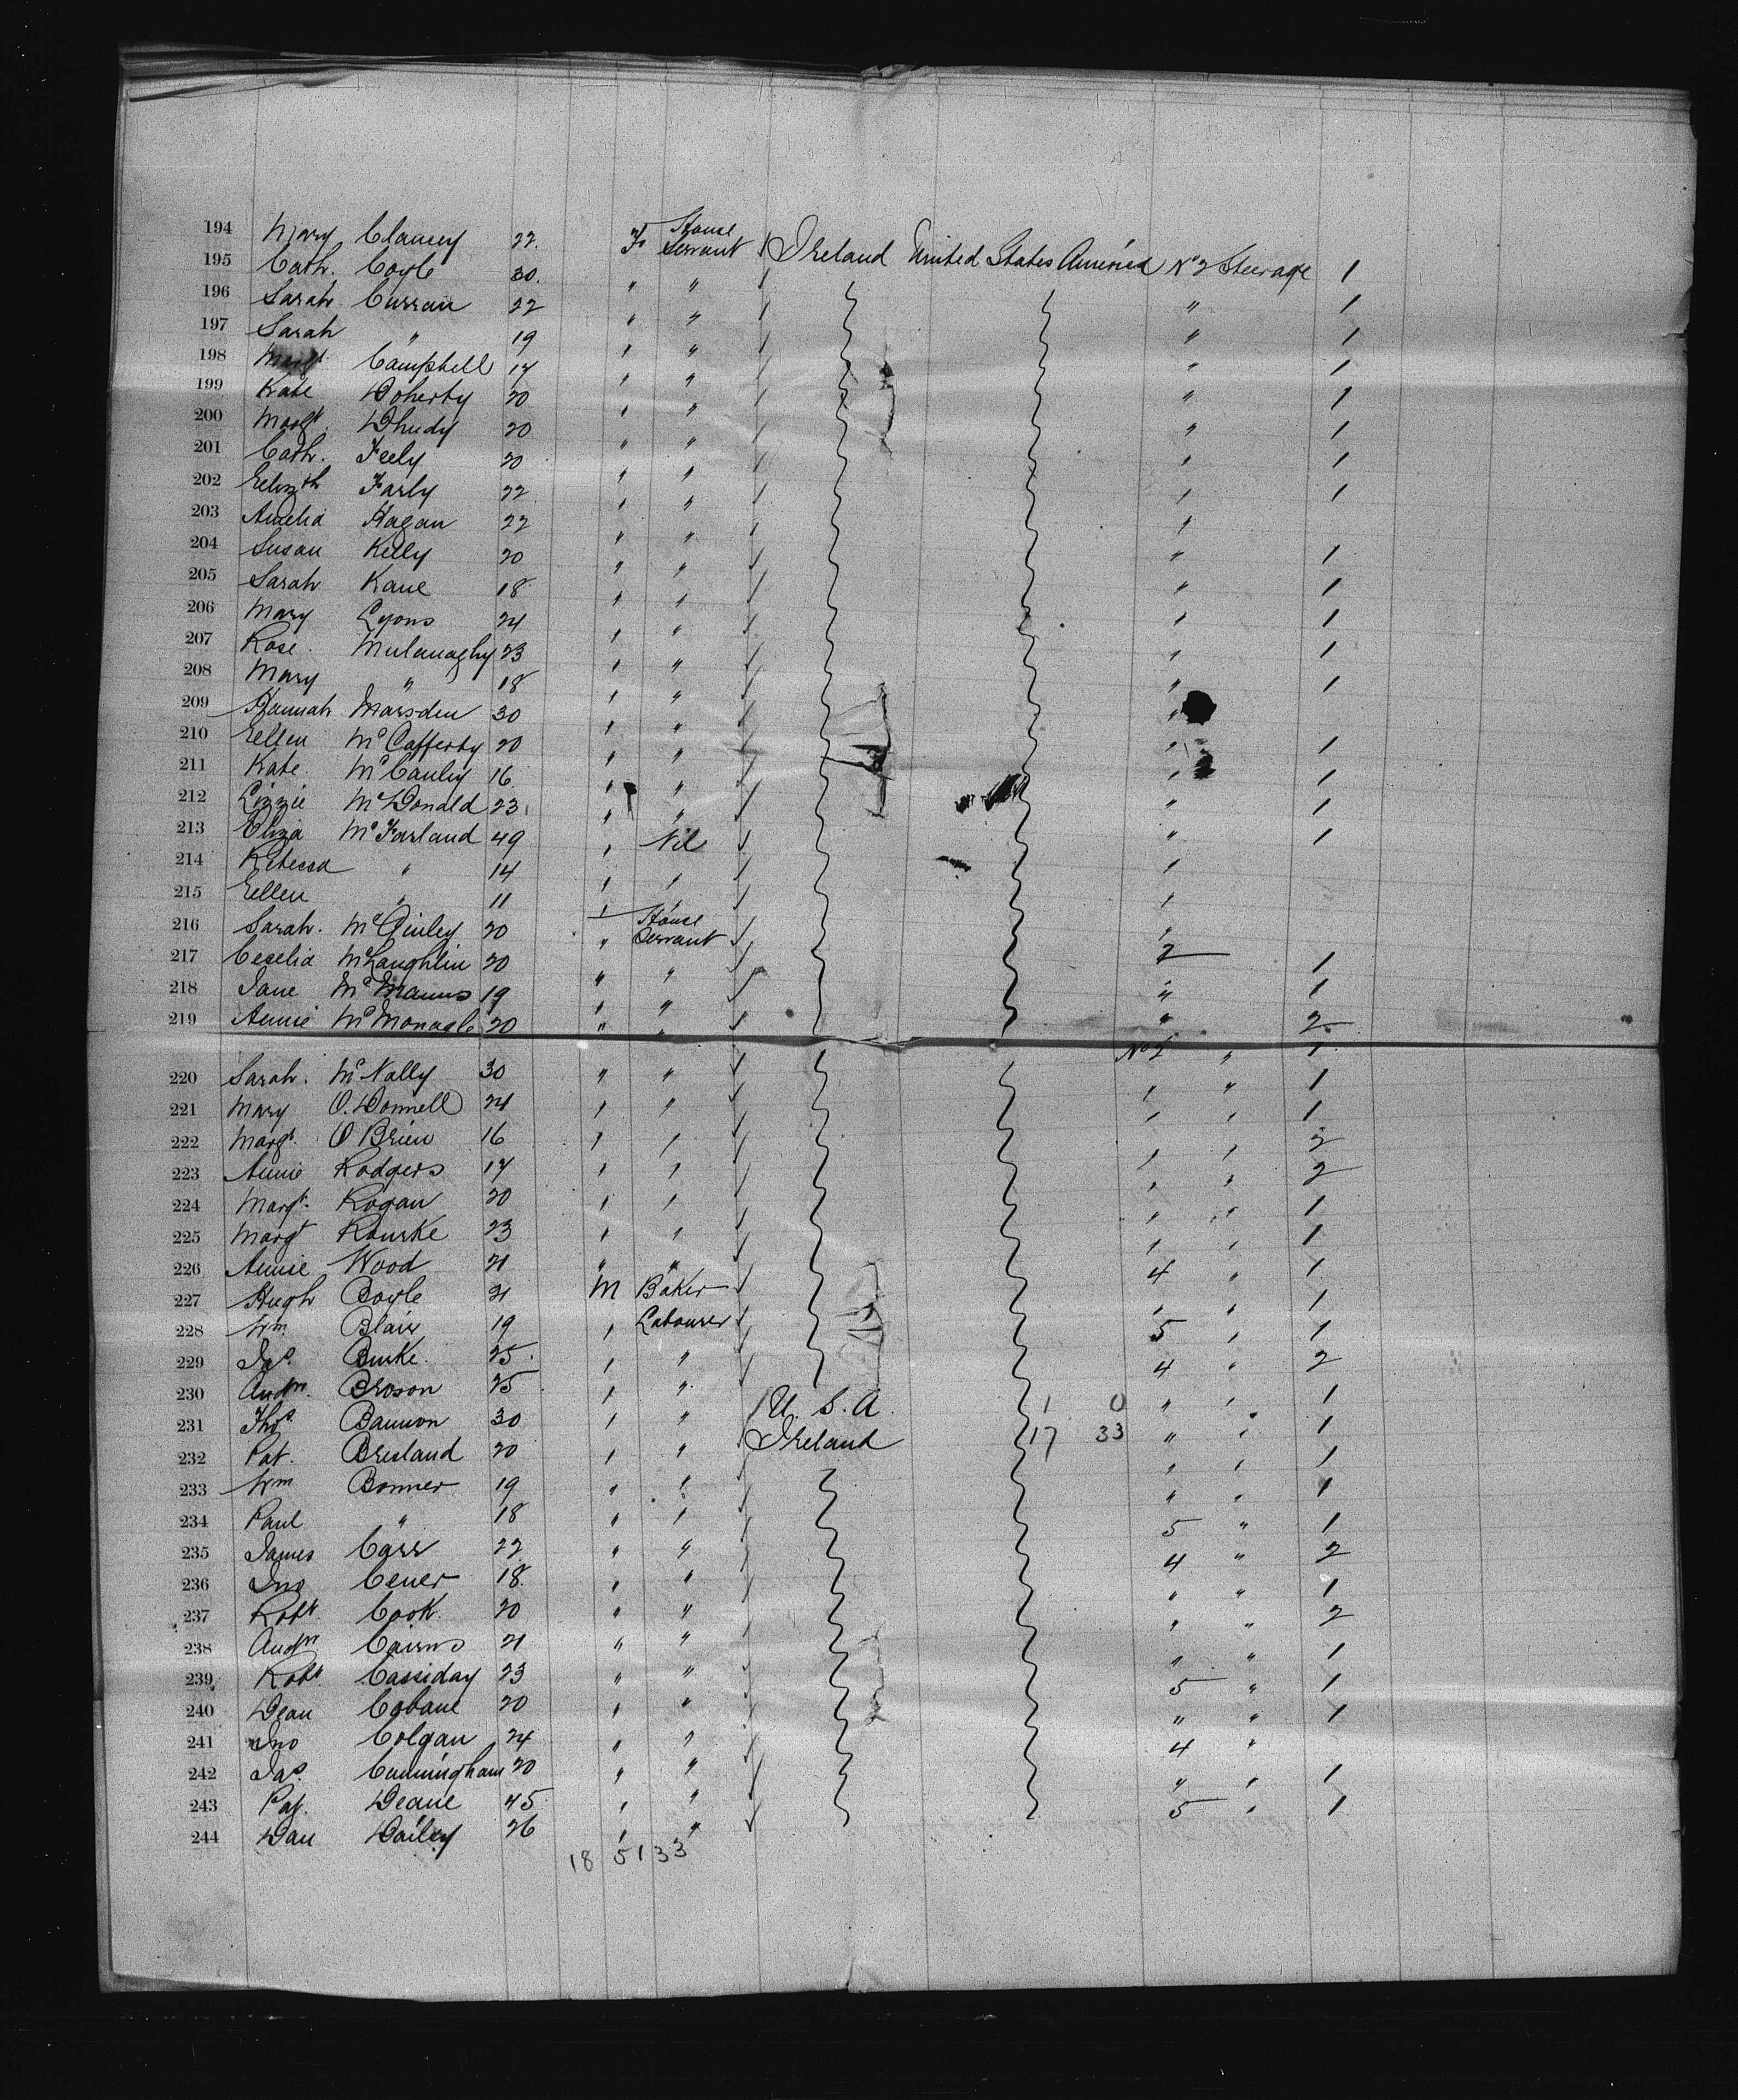 194 Mary Clancy 22. F House Servant Ireland United States America No 2 Steerage 1
195 Cath. Coyle 30. " " " 1
196 Sarah Curran 22 " " " 1
197 Sarah " 19 " " " 1
198 Margt Campbell 17 " " " 1
199 Kate Doherty 20 " " " 1
200 Margt. 20 " " " 1
201 Cath. Feely 20 " " " 1
202 Elizth Farly 22 " " "
203 Amelia Hagan 22 " " "
204 Susan Kelly 20 " " " 1
205 Sarah Kane 18 " " " 1
206 Mary Lyons 24 " " " 1
207 Rose. Mulanaghy 23 " " " 1
208 Mary " 18 " " " 1
209 Hannah Marsden 30 " " "
210 Ellen McCafferty 20 " " " 1
211 Kate McCauley 16 " " " 1
212 Lizzie McDonald 23 " " " 1
213 Eliza McFarland 49 " Nil " 1
214 Rebecca " 14 " " "
215 Ellen " 11 " " "
216 Sarah. McGinley 20 " House Servant "
217 Cecelia McLaughlin 20 " " 2 1
218 Jane McManus 19 " " " 1
219 Annie McMonagle 20 " " " 2
220 Sarah. McNally 30 " " No 2 " 1
221 Mary O.Donnell 24 " " " " 1
222 Margt. O Brien 16 " " " " 1
223 Annie Rodgers 17 " " " " 2
224 Margt. Rogan 20 " " " " 2
225 Margt Rourke 23 " " " " 1
226 Annie Wood 21 " " " " 1
227 Hugh Boyle 21 M Baker 4 " 1
228 Wm Blair 19 " Labourer " " 1
229 Jas. Burke. 25. " " 5 " 1
230 Andw. 25 " " 4 " 2
231 Thos. Bannon 30 " " U. S. A. 1 0 " " 1
232 Pat. Bresland 20 " " Ireland 17 33 " " 1
233 Wm Bonner 19 " " " " 1
234 Paul " 18 " " " " 1
235 James Carr 22 " " 5 " 1
236 Jno 18. " " 4 " 2
237 Robt. Cook. 20 " " " " 1
238 Andw Cairns 21 " " " " 2
239 Robt. Cassiday 23 " " " " 1
240 Dean 20 " " 5 " 1
241 Jno Colgan 24 " " " " 1
242 Jas. Cunningham 20 " " 4 "
243 Pat. Deane 45 " " " " 1
244 Dan Dailey 26 " " 5 " 1
18 51 33